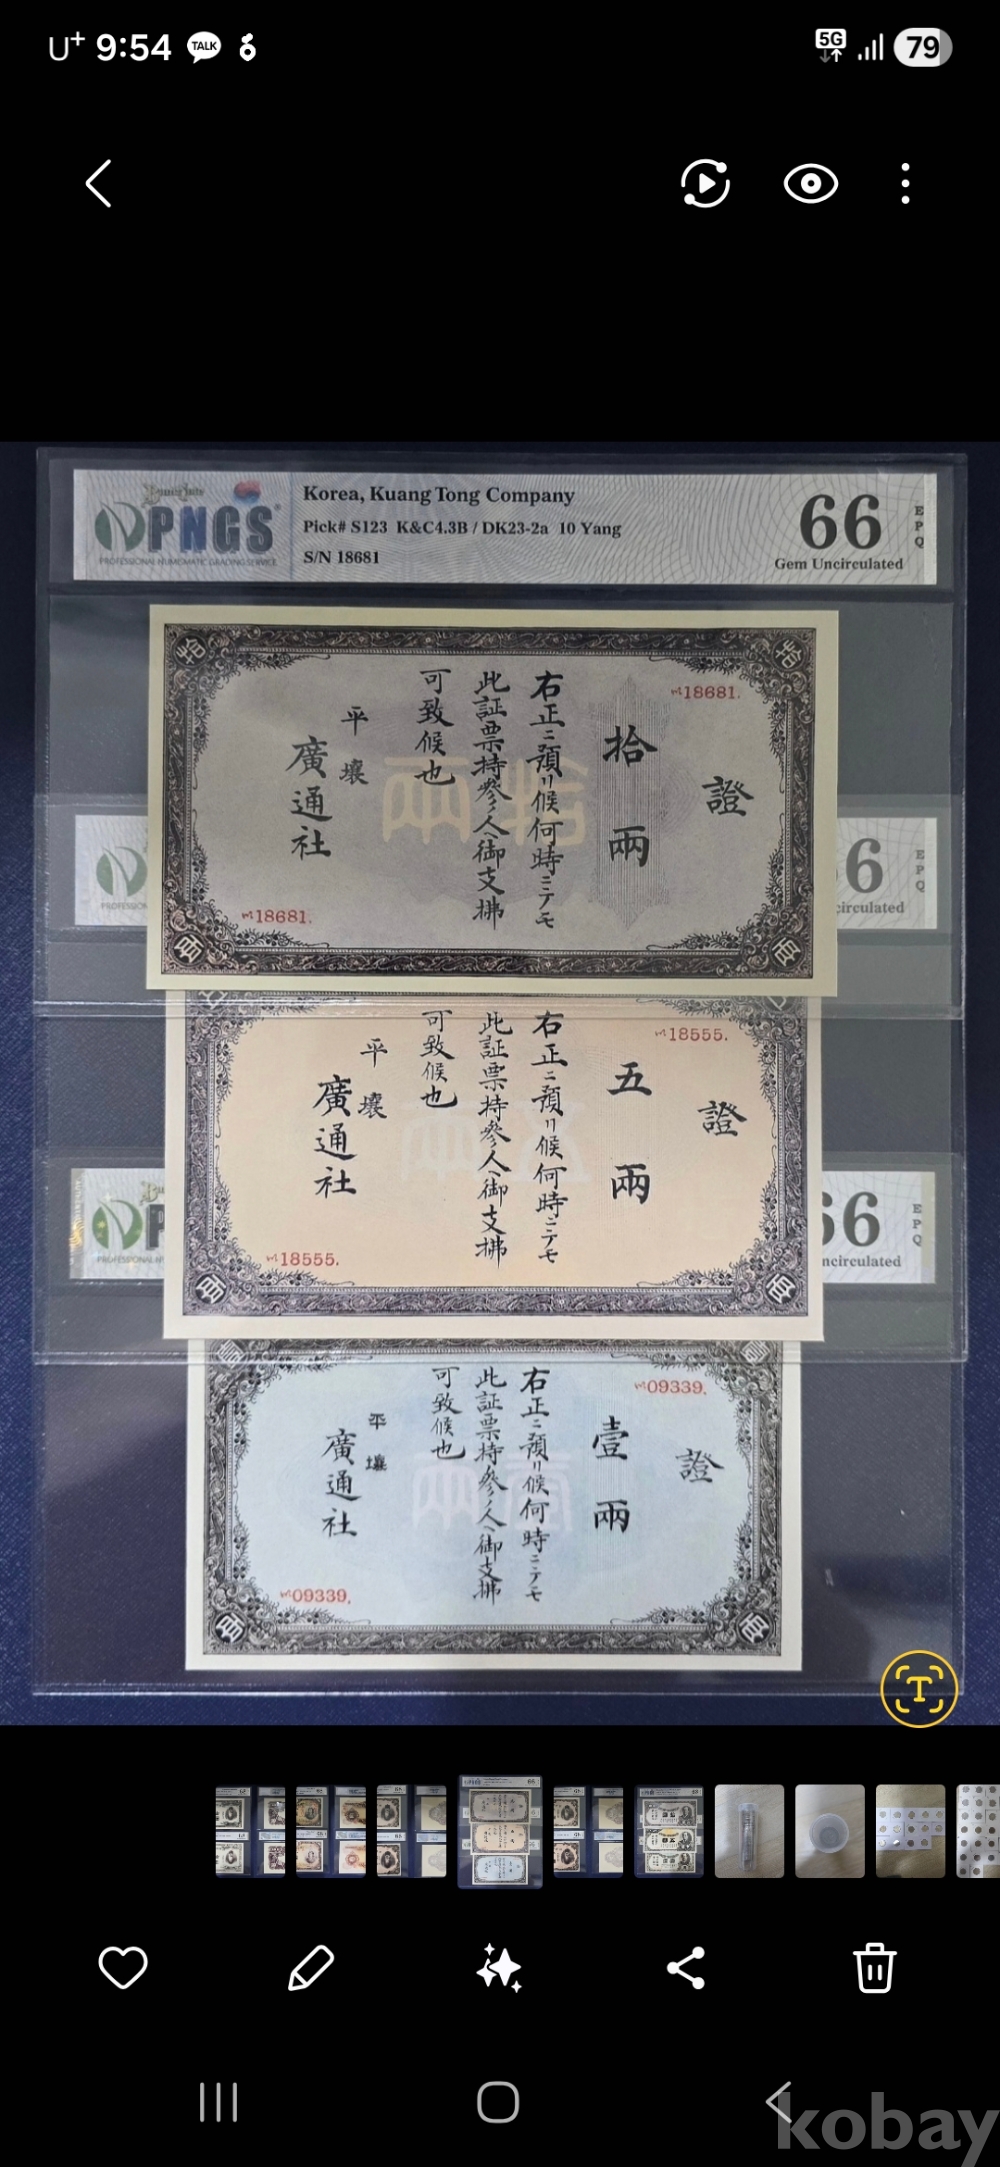 U+ 9:54 TALK
5G 79
PNGS
PROFESSIONAL NUMISMATIC GRADING SERVICE
Korea, Kuang Tong Company
Pick# S123 K&C4.3B / DK23-2a 10 Yang
S/N 18681
66
EPQ
Gem Uncirculated
拾
拾
18681.
證
拾兩
右正ニ預リ候何時ニテモ
此証票持參ノ人ヘ御支拂
可致候也
平壤
廣通社
拾兩
18681.
兩
兩
6
EPQ
circulated
18555.
證
五兩
右正ニ預リ候何時ニテモ
此証票持參ノ人ヘ御支拂
可致候也
平壤
廣通社
五兩
18555.
兩
兩
P
66
EPQ
ncirculated
09339.
證
壹兩
右正ニ預リ候何時ニテモ
此証票持參ノ人ヘ御支拂
可致候也
平壤
廣通社
壹兩
09339.
兩
兩
T
kobay